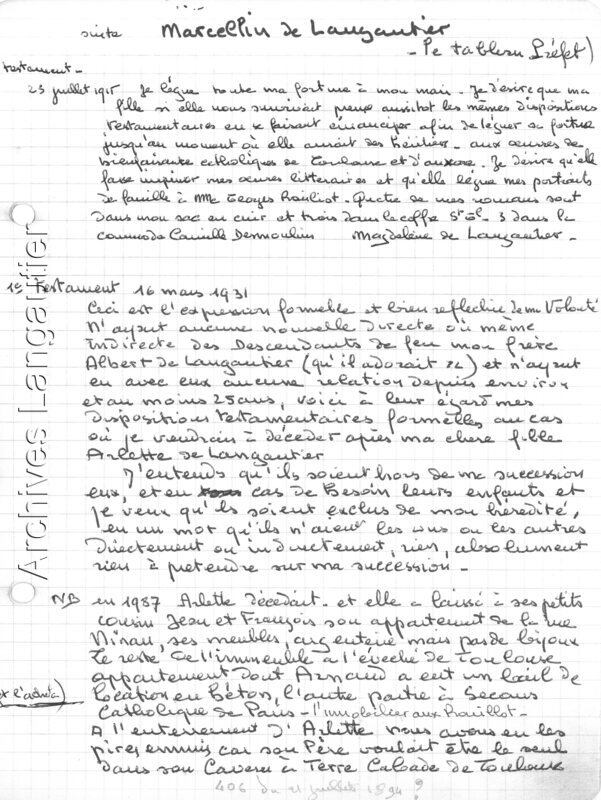 suite Marcellin de Langautier
- Le tableau Préfet)
testament -
23 juillet 1915 Je lègue toute ma fortune à mon mari. Je désire que ma
fille si elle nous survivait prenne aussitot les mêmes dispositions
testamentaires en se faisant émanciper afin de léguer sa fortune
jusqu'au moment où elle aurait des héritiers - aux oeuvres de
bienfaisante catholiques de Toulouse et d'auxone. Je désire qu'elle
fasse imprimer mes oeuvres litteraires et qu'elle lègue mes portraits
de famille à Mme Georges Rouillot. Quatre de mes romans sont
dans mon sac en cuir et trois dans le coffe 3 dans la
commode Camille Desmoulins Magdeleine de Langautier -
1er testament 16 mars 1931
Ceci est l'expression formelle et bien reflechie de ma Volonté
N'ayant aucune nouvelle directe où même
indirecte des Descendants de feu mon frère
Albert de Langautier (qu'il adorait ) et n'ayant
eu avec eux aucune relation depuis environ
et au moins 25 ans, voici à leur égard mes
dispositions testamentaires formelles au cas
où je viendrais à décéder après ma chere fille
Arlette de Langautier
J'entends qu'ils soient hors de ma succession
eux, et en cas de Besoin leurs enfants et
je veux qu'ils soient exclus de mon hérédité,
en un mot qu'ils n'aient les uns ou les autres
directement ou indirectement, rien, absolument
rien à pretendre sur ma succession -
NB en 1987 Arlette décédait - et elle a laissé à ses petits
cousin Jean et François son appartement de la rue
Ninau, ses meubles, argenterie mais pas de bijoux
le reste de l'immeuble à l'évêché de Toulouse
appartement dont Arnaud a eut un bail de
location en béton, l'autre partie à Secours
Catholique de Paris - l'immobilier aux Rouillot -
A l'enterrement d'Arlette nous avons eu les
pires ennuis car son Père voulait être le seul
dans son Caveau à Terre Cabade de Toulouse
406 du 21 juillet 1894 ?
Archives Langautier